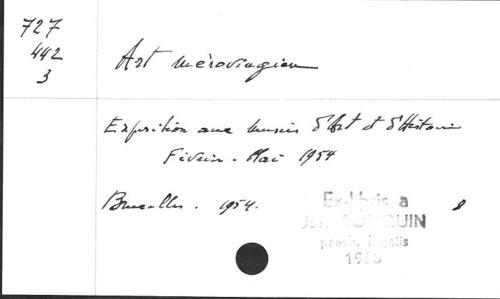 727
442
3
Art mérovingien
Exposition aux musées d'Art et d'Histoire
Février - Mai 1954
Bruxelles. 1954.
Ex-libris a
presb.